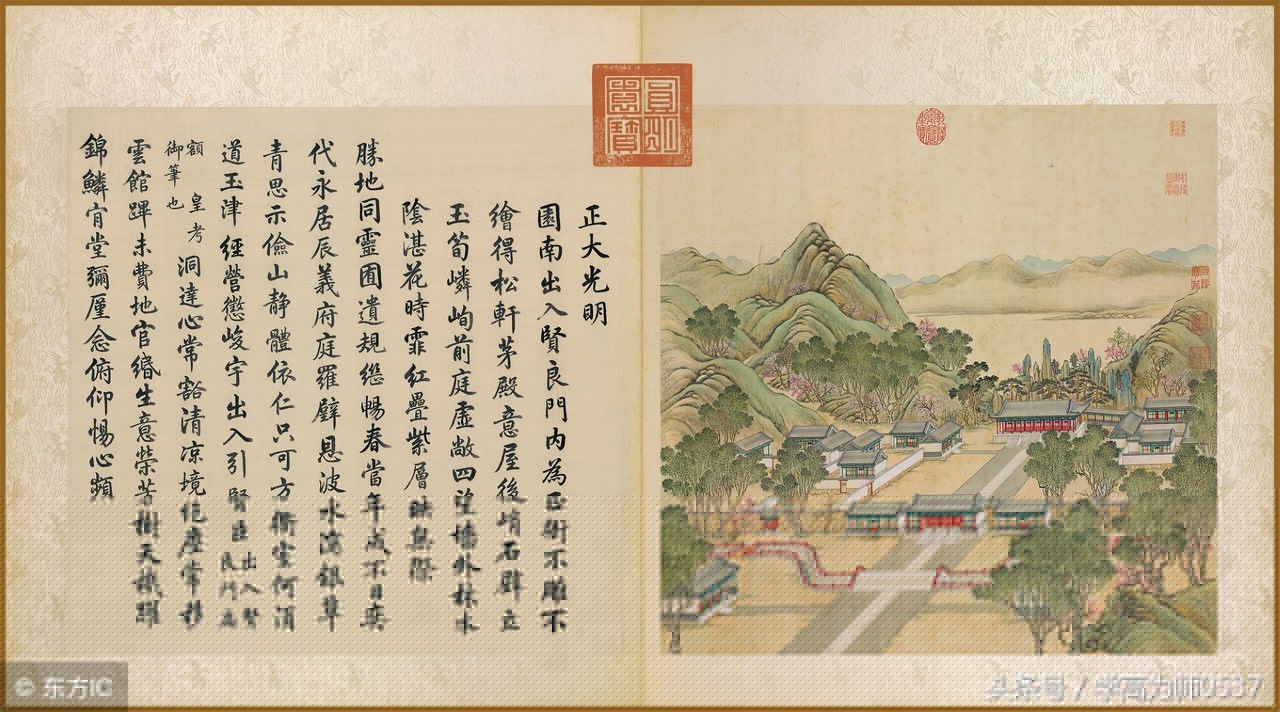 正大光明
園南出入賢良門内為正衙不雕不
繪得松軒茅殿意屋後峭石壁立
玉筍嶙峋前庭虛敞四望墻外林木
陰湛花時霏紅疊紫層映無際
勝地同靈囿遺規繼暢春當年成不日奕
代永居辰義府庭羅壁恩波水瀉銀草
青思示儉山静體依仁只可方衢室何須
道玉津經營懲峻宇出入引賢臣出入賢良門為
額皇考御筆也洞達心常豁清凉境絶塵常移
雲館蹕未費地官緡生意榮芳樹天機躍
錦鱗肯堂彌厪念俯仰惕心頻
© 东方IC
头条号 / 学高为师0537